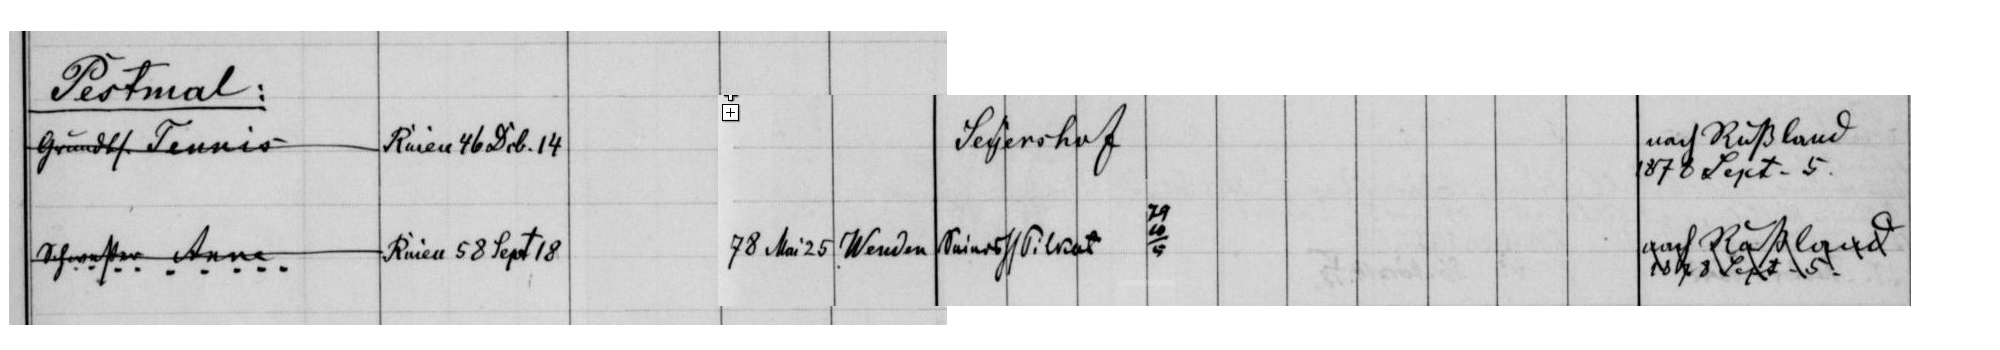 Pestmal:
Grundbs. Tennis Rujen 46 Dcb. 14 Seyershof nach Rußland
1878 Sept. 5.
Schwester Anna Rujen 58 Sept 18 78 Mai 25 Wenden 79
10
5 nach Rußland
1878 Sept. 5.